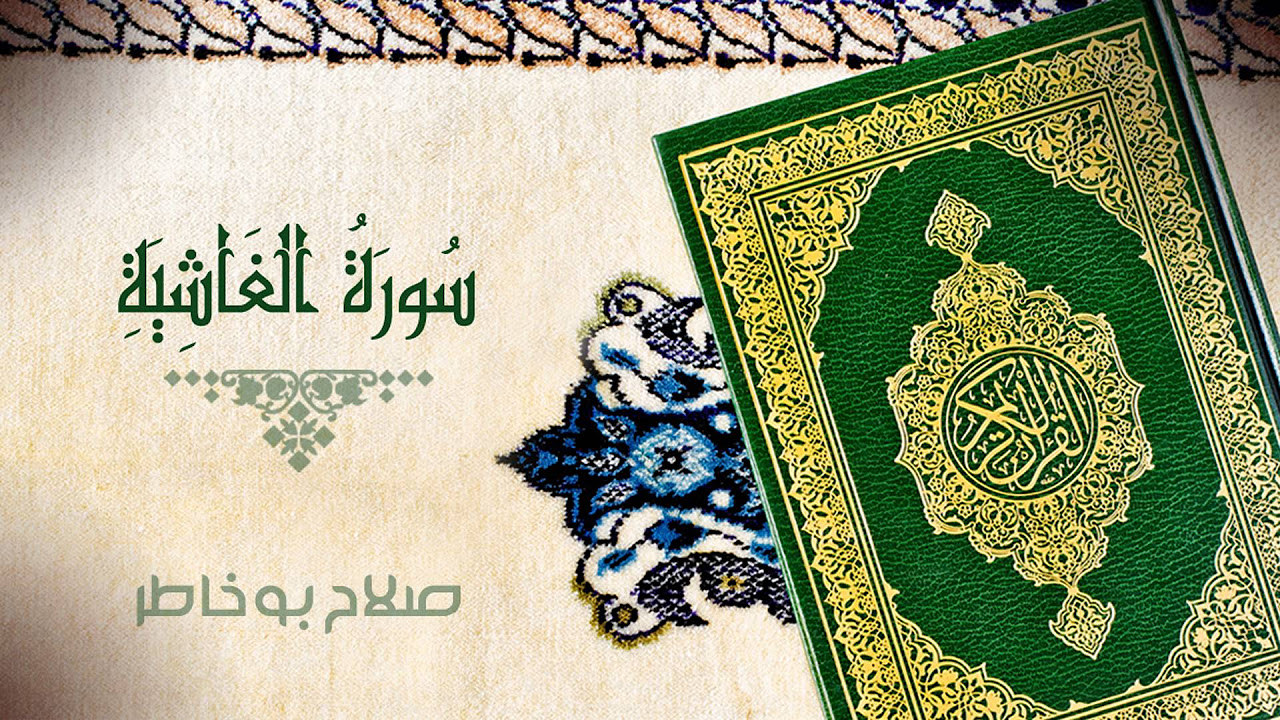 سُورَةُ الغَاشِيَةِ
صلاح بوخاطر
القرآن الكريم